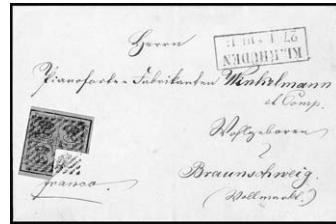 Herrn
KL. RHÜDEN
Pianoforte-Fabrikanten Winkelmann
et Comp.
Wohlgeboren
Braunschweig.
franco.